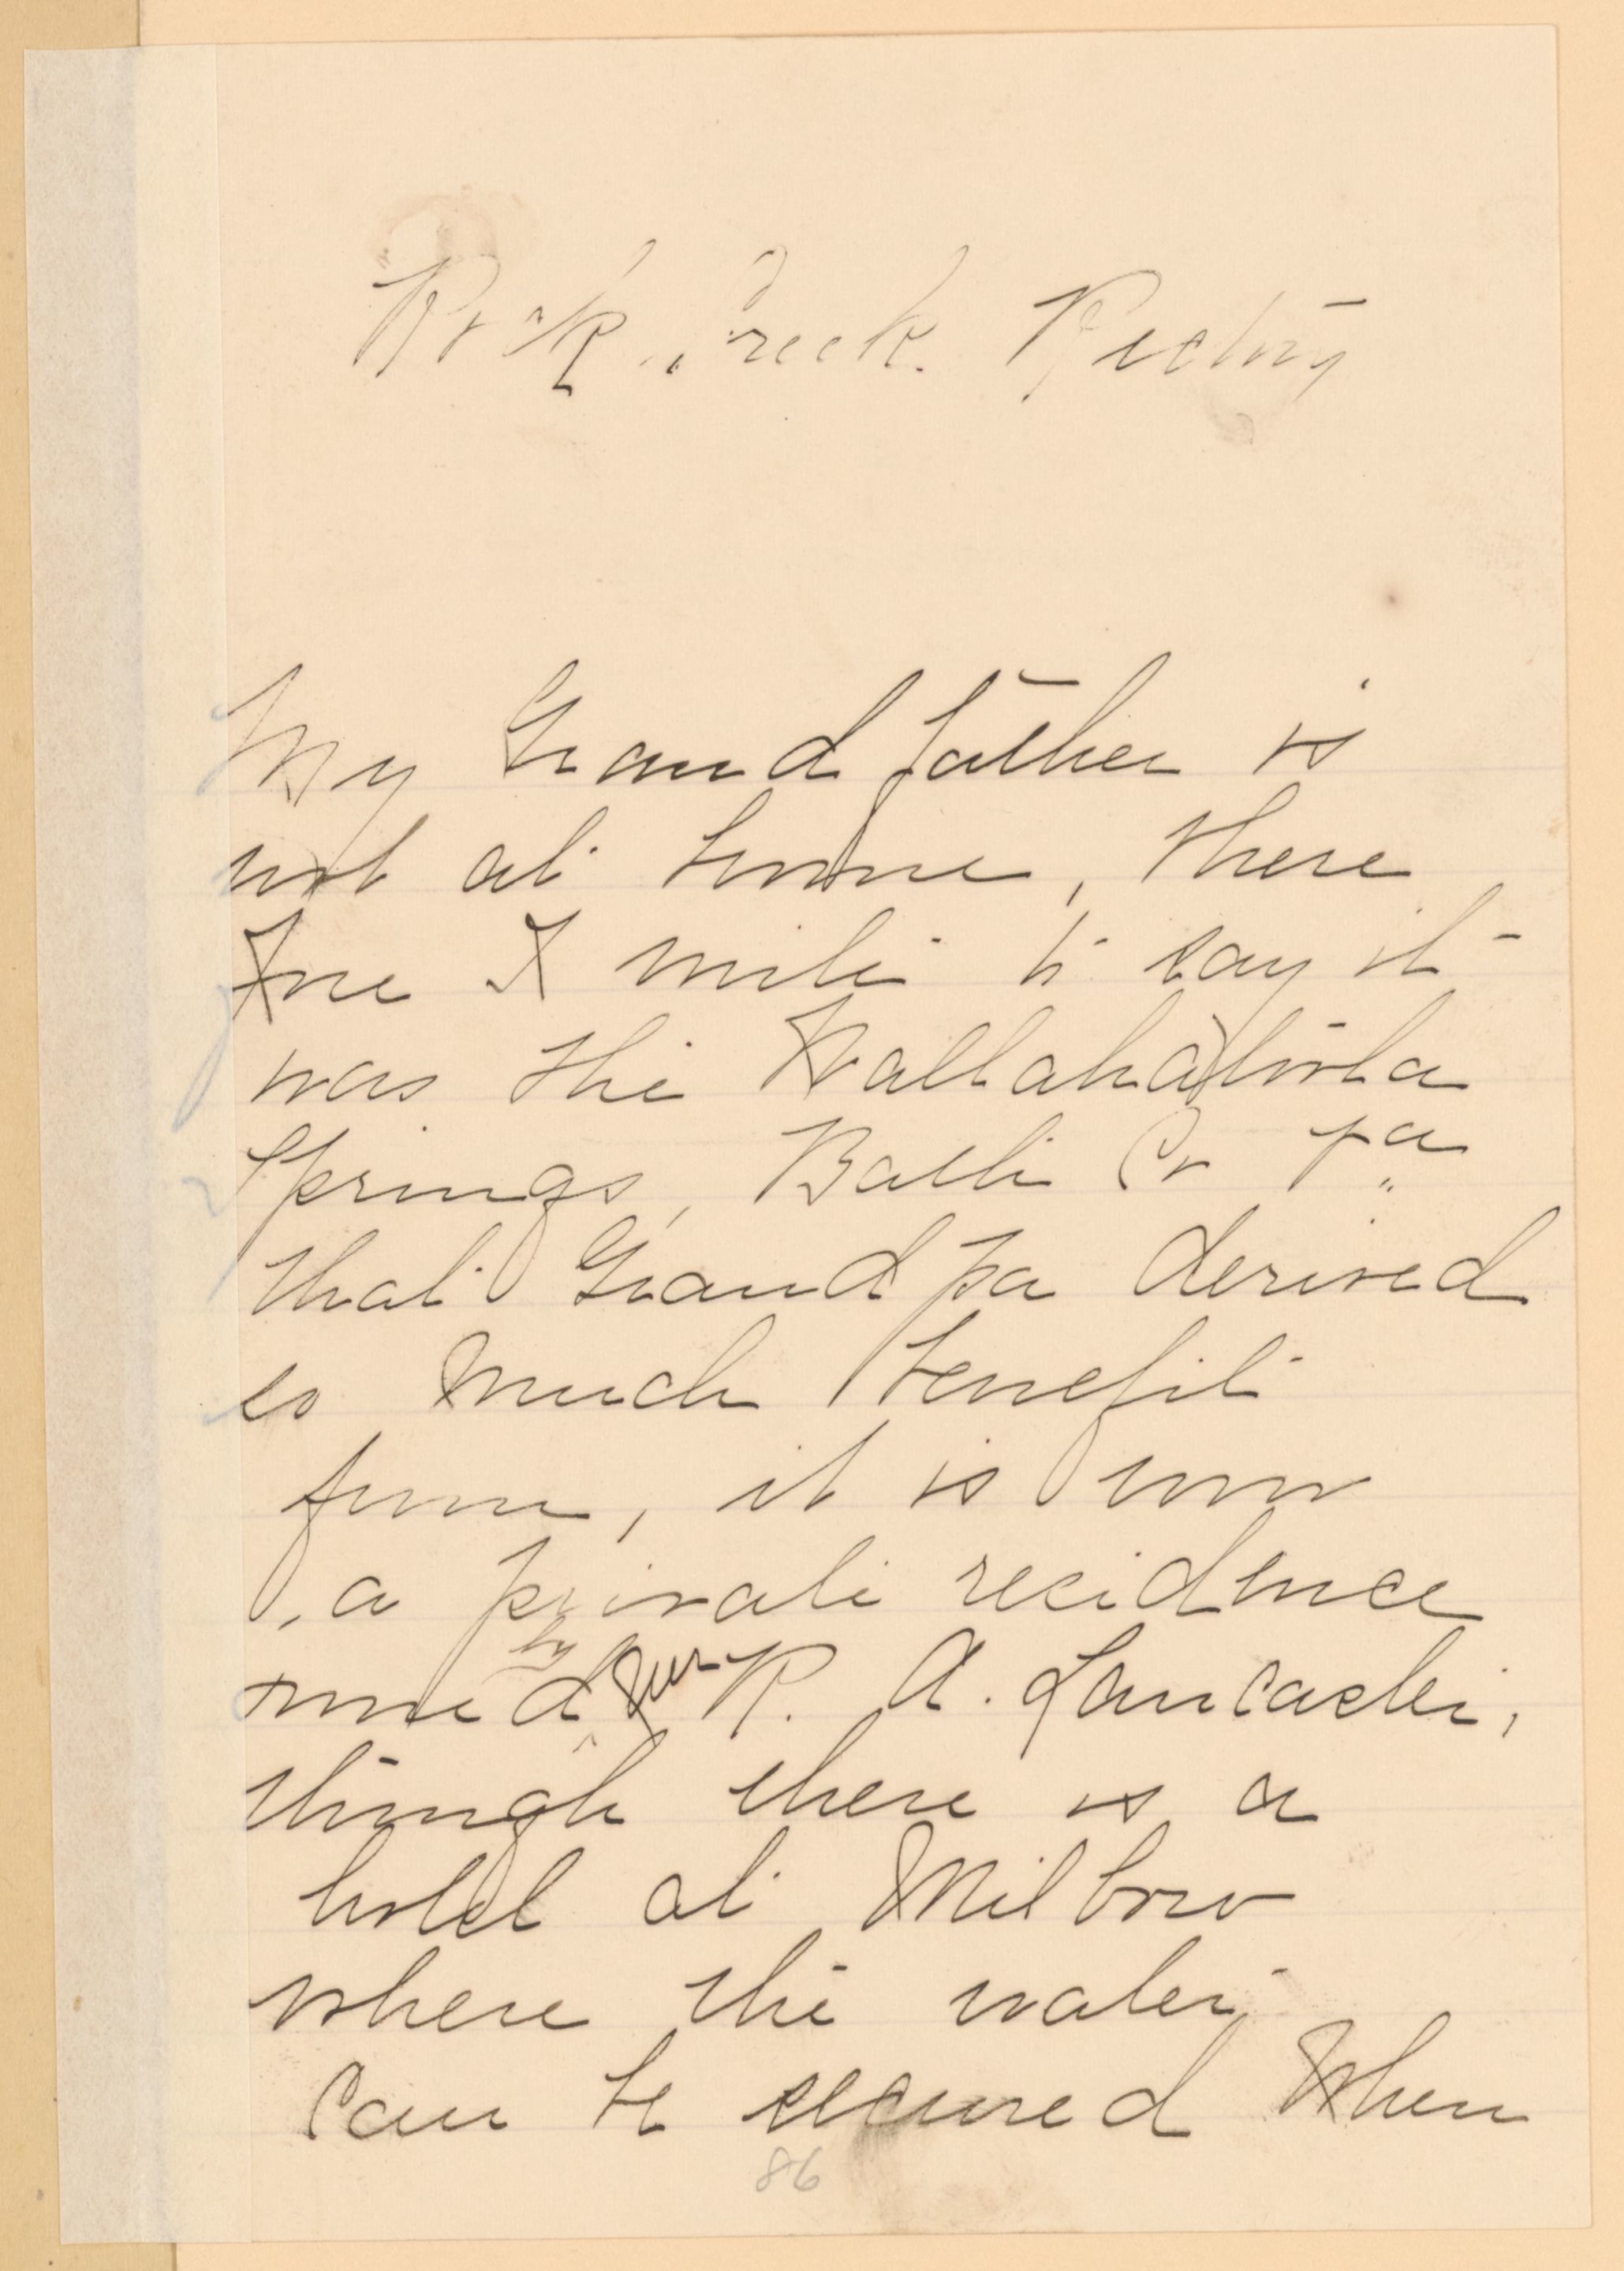 Rock Creek Rectory
My Grandfather is
not at home, there
fore I write to say it
was the Wallahatoola
Springs, Bath Co Va
that Grandpa derived
so much benefit
from, it is now
a private residence
owned by R. A. Lancaster,
though there is a
hotel at Milboro
where the water
can be secured when
86